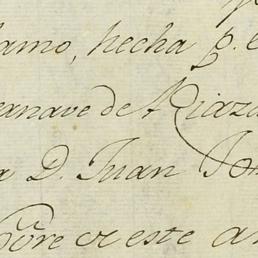 amo, hecha p.
anave de Riaza
a D. Juan
bre de este a